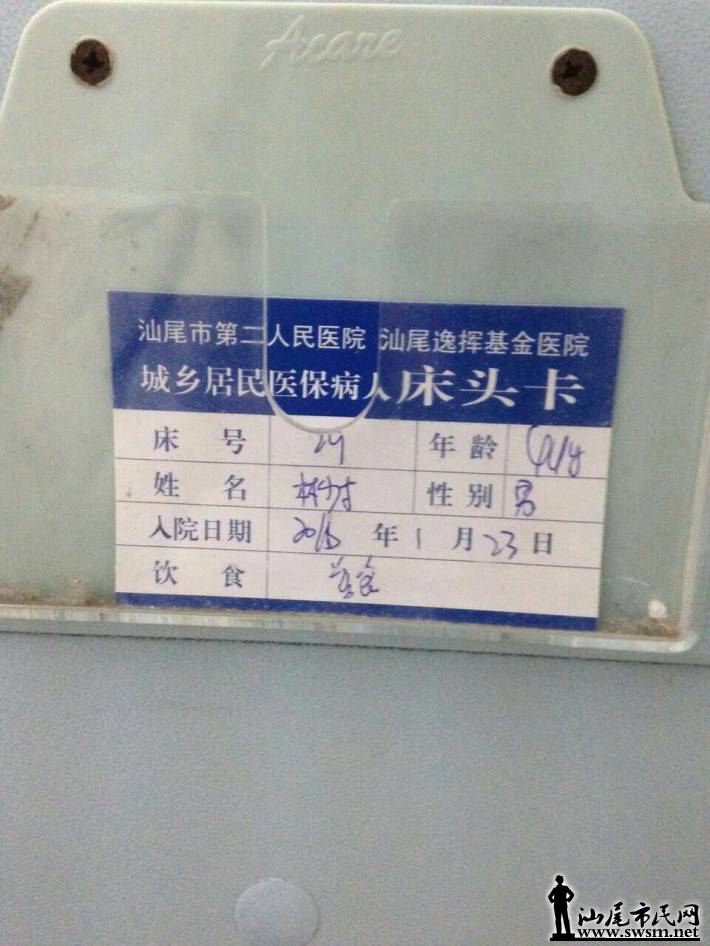 Acare
汕尾市第二人民医院 汕尾逸挥基金医院
城乡居民医保病人床头卡
床 号 年 龄
姓 名 林 性 别 男
入院日期 年 1 月 23 日
饮 食 普食
汕尾市民网
www.swsm.net